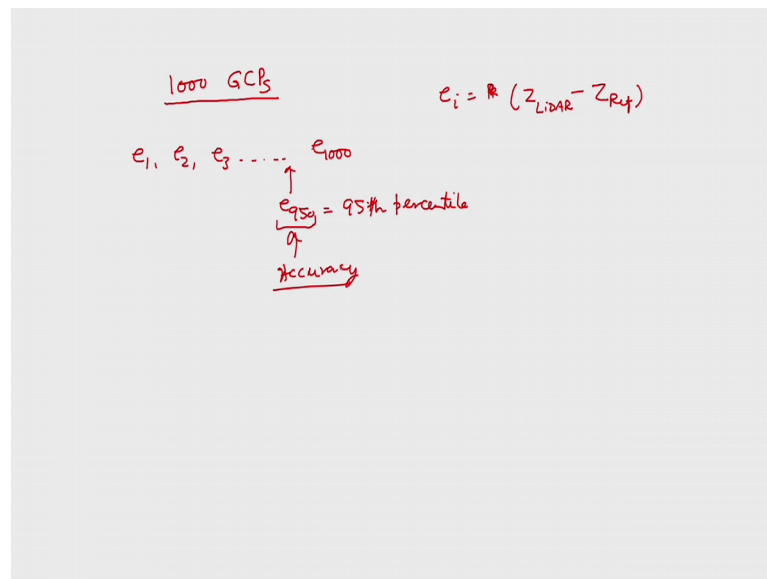 1000 GCPs
e_i = (Z_LiDAR - Z_Ref)
e_1, e_2, e_3 ...... e_1000
e_959 = 95th percentile
Accuracy